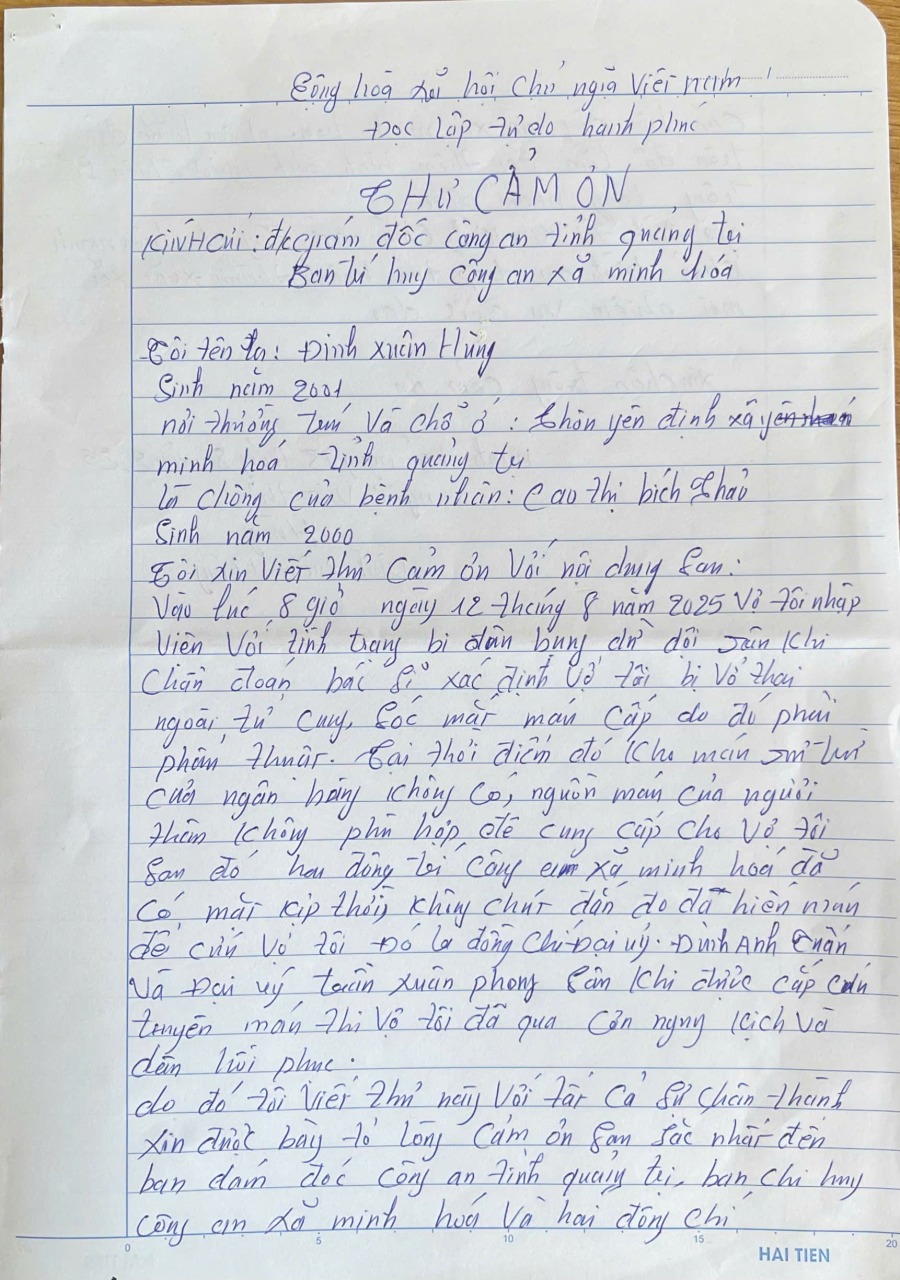 Cộng hoà xã hội Chủ ngĩa Việt nam
Độc lập tự do hanh phúc
THƯ CẢM ƠN
KÍNH GỬI: đ/c giám đốc công an tỉnh quảng tị
Ban tỉ huy công an xã minh hóa
Tôi tên la: Đinh Xuân Hùng
Sinh năm 2001
nơi thường tuú và chổ ở: thôn yên định xã
minh hoá tỉnh quảng tị
là chồng của bệnh nhân: Cao thị bích thảo
Sinh năm 2000
Tôi xin viết thư cảm ơn với nội dung sau:
Vào lúc 8 giờ ngày 12 tháng 8 năm 2025 vợ tôi nhập
viên với tình trạng bị đân bụng dữ dội sân khi
Chẩn đoán bác sĩ xác định vợ tôi bị vỡ thai
ngoài tử cung, sốc mất máu cấp do đó phải
phẩn thuật. Tại thời điểm đó kho máu
của ngân hàng không có, nguồn máu của người
thân không phù hợp để cung cấp cho vợ tôi
sau đó hai đồng tí công an xã minh hoá đã
có mặt kịp thời, không chút đắn do đã hiến máu
để cứu vợ tôi Đó là đồng chí Đại uý. Đinh Anh Tuấn
Và Đại uý tuần xuân phong sân khi được cấp cứu
truyền máu thì vợ tôi đã qua cơn nguy kịch và
dần hồi phục.
do đó tôi viết thư này với tất cả sự chân thành
xin được bày tỏ lòng cảm ơn sau sắc nhất đến
ban dám đốc công an tỉnh quảng tị, ban chi huy
công an xã minh hoá và hai đồng chí
0 5 10 15 20
HAI TIEN